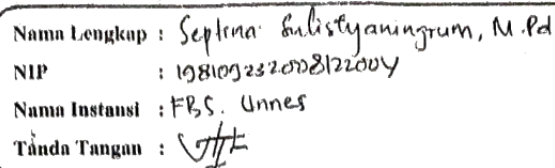 Nama Lengkap : Septina Sulistyaningrum, M.Pd
NIP : 198109232008122004
Nama Instansi : FBS. Unnes
Tanda Tangan :